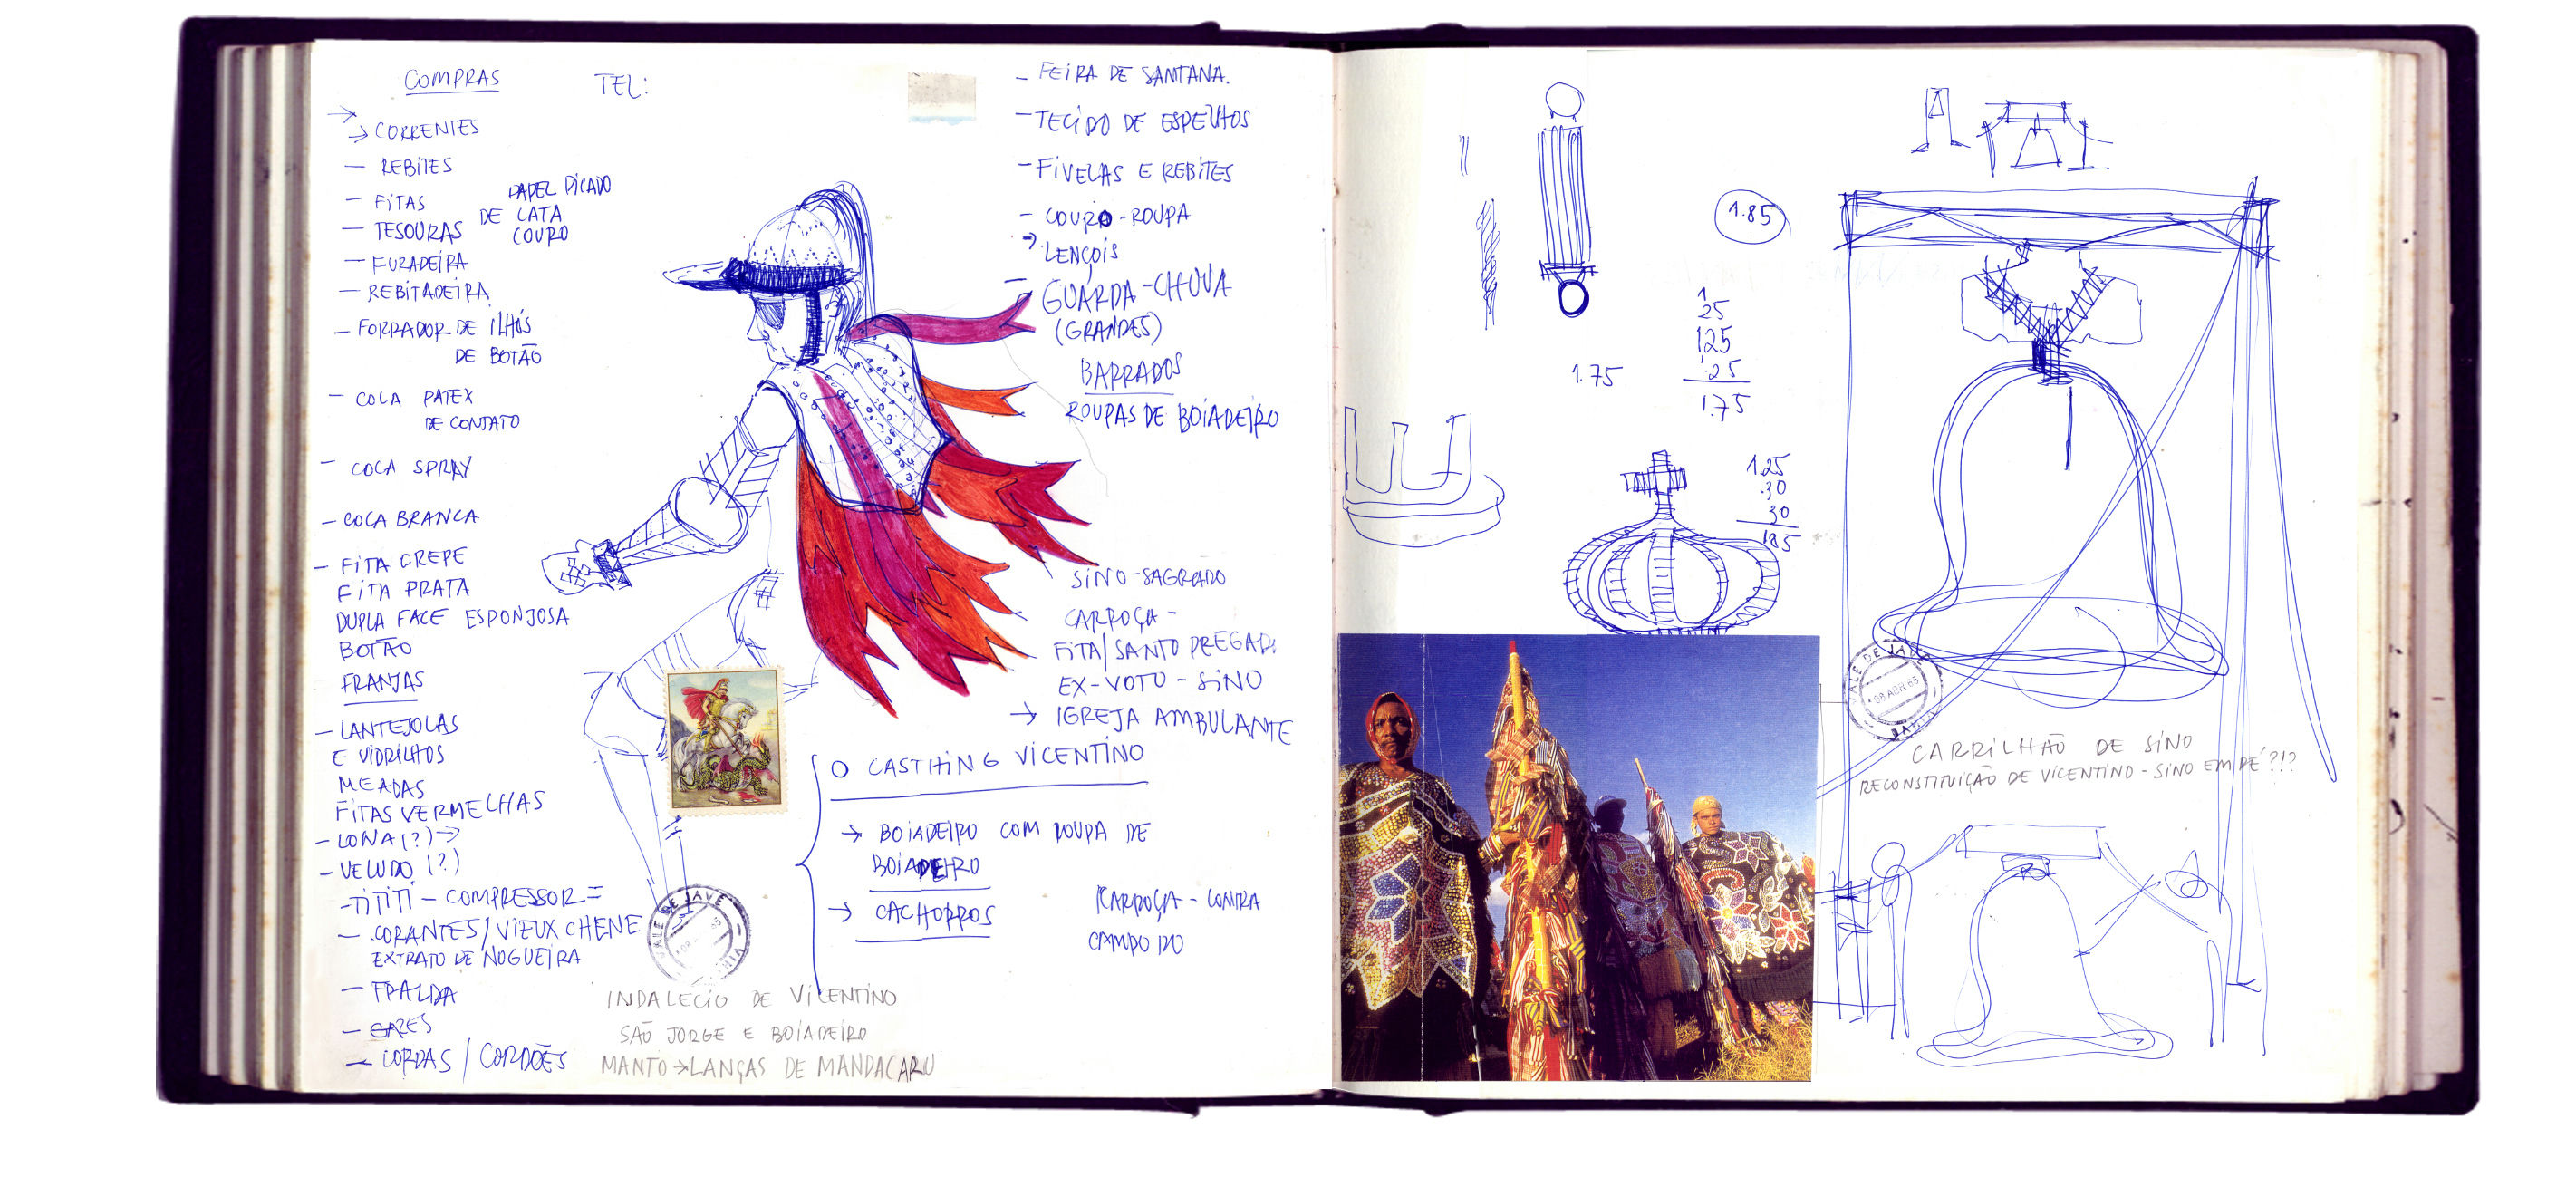 COMPRAS
TEL:
CORRENTES
- REBITES
- FITAS
- TESOURAS DE
PAPEL PICADO
LATA
COURO
- FURADEIRA
- REBITADEIRA
- FORRADOR DE ILHÓS
DE BOTÃO
- COLA PATEX
DE CONTATO
- COLA SPRAY
- COLA BRANCA
- FITA CREPE
FITA PRATA
DUPLA FACE ESPONJOSA
BOTÃO
FRANJAS
- LANTEJOLAS
E VIDRILHOS
MEADAS
FITAS VERMELHAS
- LONA (?) →
- VELUDO (?)
- TITITI - COMPRESSOR =
- CORANTES / VIEUX CHENE
EXTRATO DE NOGUEIRA
- FRALDA
- GAZES
- CORDAS / CORDÕES
- FEIRA DE SANTANA.
- TECIDO DE ESPELHOS
- FIVELAS E REBITES
- COURO - ROUPA
→ LENÇOIS
- GUARDA-CHUVA
(GRANDES)
BARRADOS
ROUPAS DE BOIADEIRO
SINO-SAGRADO
CARROÇA -
FITA/SANTO PREGAD.
EX-VOTO - SINO
→ IGREJA AMBULANTE
O CASTHING VICENTINO
→ BOIADEIRO COM ROUPA DE
BOIADEIRO
→ CACHORROS
CARROÇA - CONTRA
CAMPO DO
VALE DE JAVÉ
INDALECIO DE VICENTINO
SÃO JORGE E BOIADEIRO
MANTO → LANÇAS DE MANDACARU
1.85
1
25
125
25
1.75
1.75
1.25
.30
30
1.85
VALE DE JAVÉ
08 ABR 65
BAHIA
CARRILHÃO DE SINO
RECONSTITUIÇÃO DE VICENTINO - SINO EM PÉ ?!?